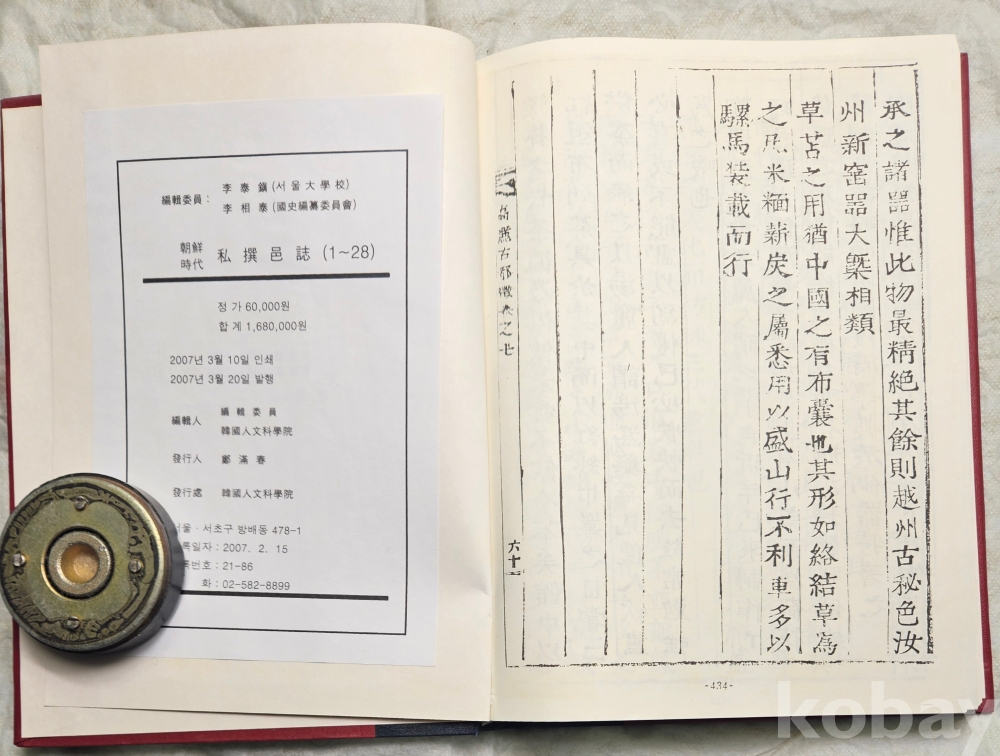 編輯委員 :
李 泰 鎭 (서 울 大 學 校)
李 相 泰 (國史編纂委員會)
朝鮮
時代
私 撰 邑 誌 (1~28)
정 가 60,000원
합 계 1,680,000원
2007년 3월 10일 인쇄
2007년 3월 20일 발행
編輯人
編 輯 委 員
韓國人文科學院
發行人 鄭 滿 春
發行處 韓國人文科學院
서울 · 서초구 방배동 478-1
록일자 : 2007. 2. 15
록번호 : 21-86
화 : 02-582-8899
承之諸器惟此物最精絶其餘則越州古秘色汝
州新窑器大槩相類
草苫之用猶中國之有布囊也其形如絡結草為
之凡米緬薪炭之屬悉用以盛山行不利車多以
騾馬装載而行
之七
六十
-434-
kobay